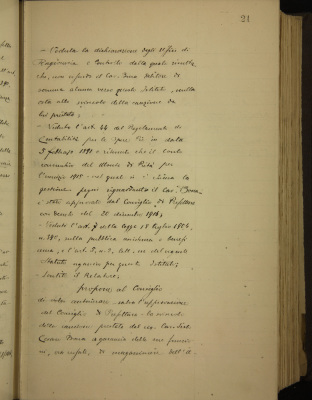 21
- Veduta la dichiarazione degli Uffici di
Ragioneria e Controllo dalla quale risulta
che, non essendo il Cav. Bona debitore di
somma alcuna verso questo Istituto, nulla
osta allo svincolo della cauzione da
lui prestata;
- Veduto l'art. 44 del Regolamento di
Contabilità per le Opere Pie in data
5 febbraio 1891 e ritenuto che il Conto
consuntivo del Monte di Pietà per
l'esercizio 1915 - nel quale si è chiusa la
gestione pegni riguardante il Cav. Bona
è stato approvato dal Consiglio di Prefettura
con del 20 dicembre 1916;
- Veduti l'art. 7 della legge 18 luglio 1904,
n. 390, sulla pubblica assistenza e benefi
cenza, e l'art. 2, n. 2, lett. del vigente
Statuto organico per questo Istituto;
- Sentito il Relatore;
propone al Consiglio
di voler autorizzare - salvo l'approvazione
del Consiglio di Prefettura - lo svincolo
della cauzione prestata dal Cav.
Bona a garanzia delle sue funzio
ni, di magazziniere dell'